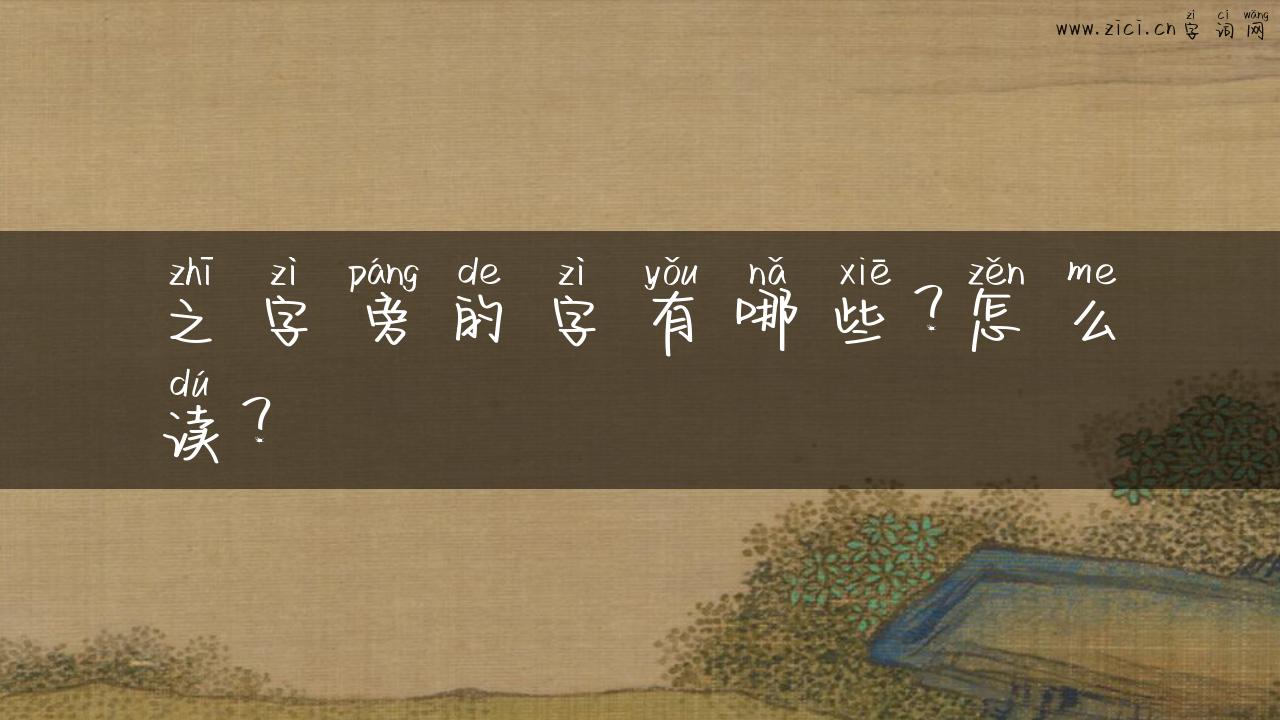 zì cí wǎng
www.zici.cn字词网
zhī zì páng de zì yǒu nǎ xiē zěn me
之字旁的字有哪些?怎么
dú
读?